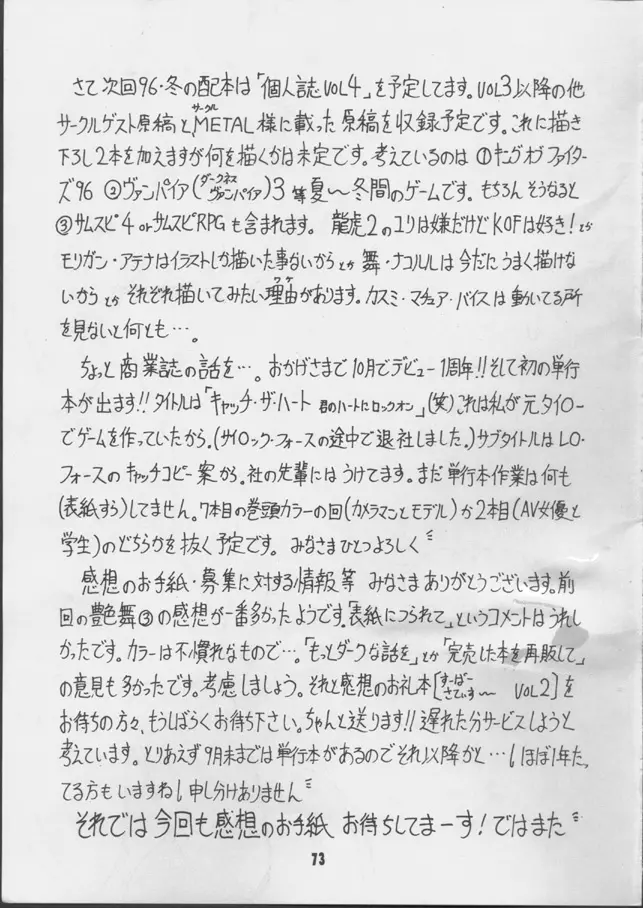 さて次回96・冬の配本は「個人誌VOL4」を予定してます。VOL3以降の他
サークルゲスト原稿と、METAL様に載った原稿を収録予定です。これに描き
サークル
下ろし2本を加えますが何を描くかは未定です。考えているのは①キングオブファイター
ズ96 ②ヴァンパイア(ダークネスヴァンパイア)3等夏〜冬間のゲームです。もちろんそうなると
③サムスピ4orサムスピRPGも含まれます。龍虎2のユリは嫌だけどKOFは好き!とか
モリガン・アテナはイラストしか描いた事ないからとか舞・ナコルルは今だにうまく描けな
いからとかそれぞれ描いてみたい理由があります。カスミ・マチュア・バイスは動いてる所
ワケ
を見ないと何とも…。
ちょっと商業誌の話を…。おかげさまで10月でデビュー1周年!!そして初の単行
本が出ます!!タイトルは「キャッチ・ザ・ハート 君のハートにロックオン」(笑)これは私が元タイロー
でゲームを作っていたから。(サイロック・フォースの途中で退社しました。)サブタイトルはLO・
フォースのキャッチコピー案から。社の先輩にはうけてます。まだ単行本作業は何も
(表紙すら)してません。7本目の巻頭カラーの回(カメラマンとモデル)か2本目(AV女優と
学生)のどちらかを抜く予定です。みなさまひとつよろしく
感想のお手紙・募集に対する情報等 みなさまありがとうございます。前
回の艶色舞③の感想が一番多かったようです。「表紙につられて」というコメントはうれし
かったです。カラーは不慣れなもので…。「もっとダークな話を」とか「完売した本を再販して」
の意見も多かったです。考慮しましょう。それと感想のお礼本[すーぱーさでぃすー〜 VOL2]を
お待ちの方々、もうしばらくお待ち下さい。ちゃんと送ります!!遅れた分サービスしようと
考えています。とりあえず9月末までは単行本があるのでそれ以降かと…(ほぼ1年た
てる方もいますね)申し分けありません
それでは今回も感想のお手紙 お待ちしてまーす!ではまた
73